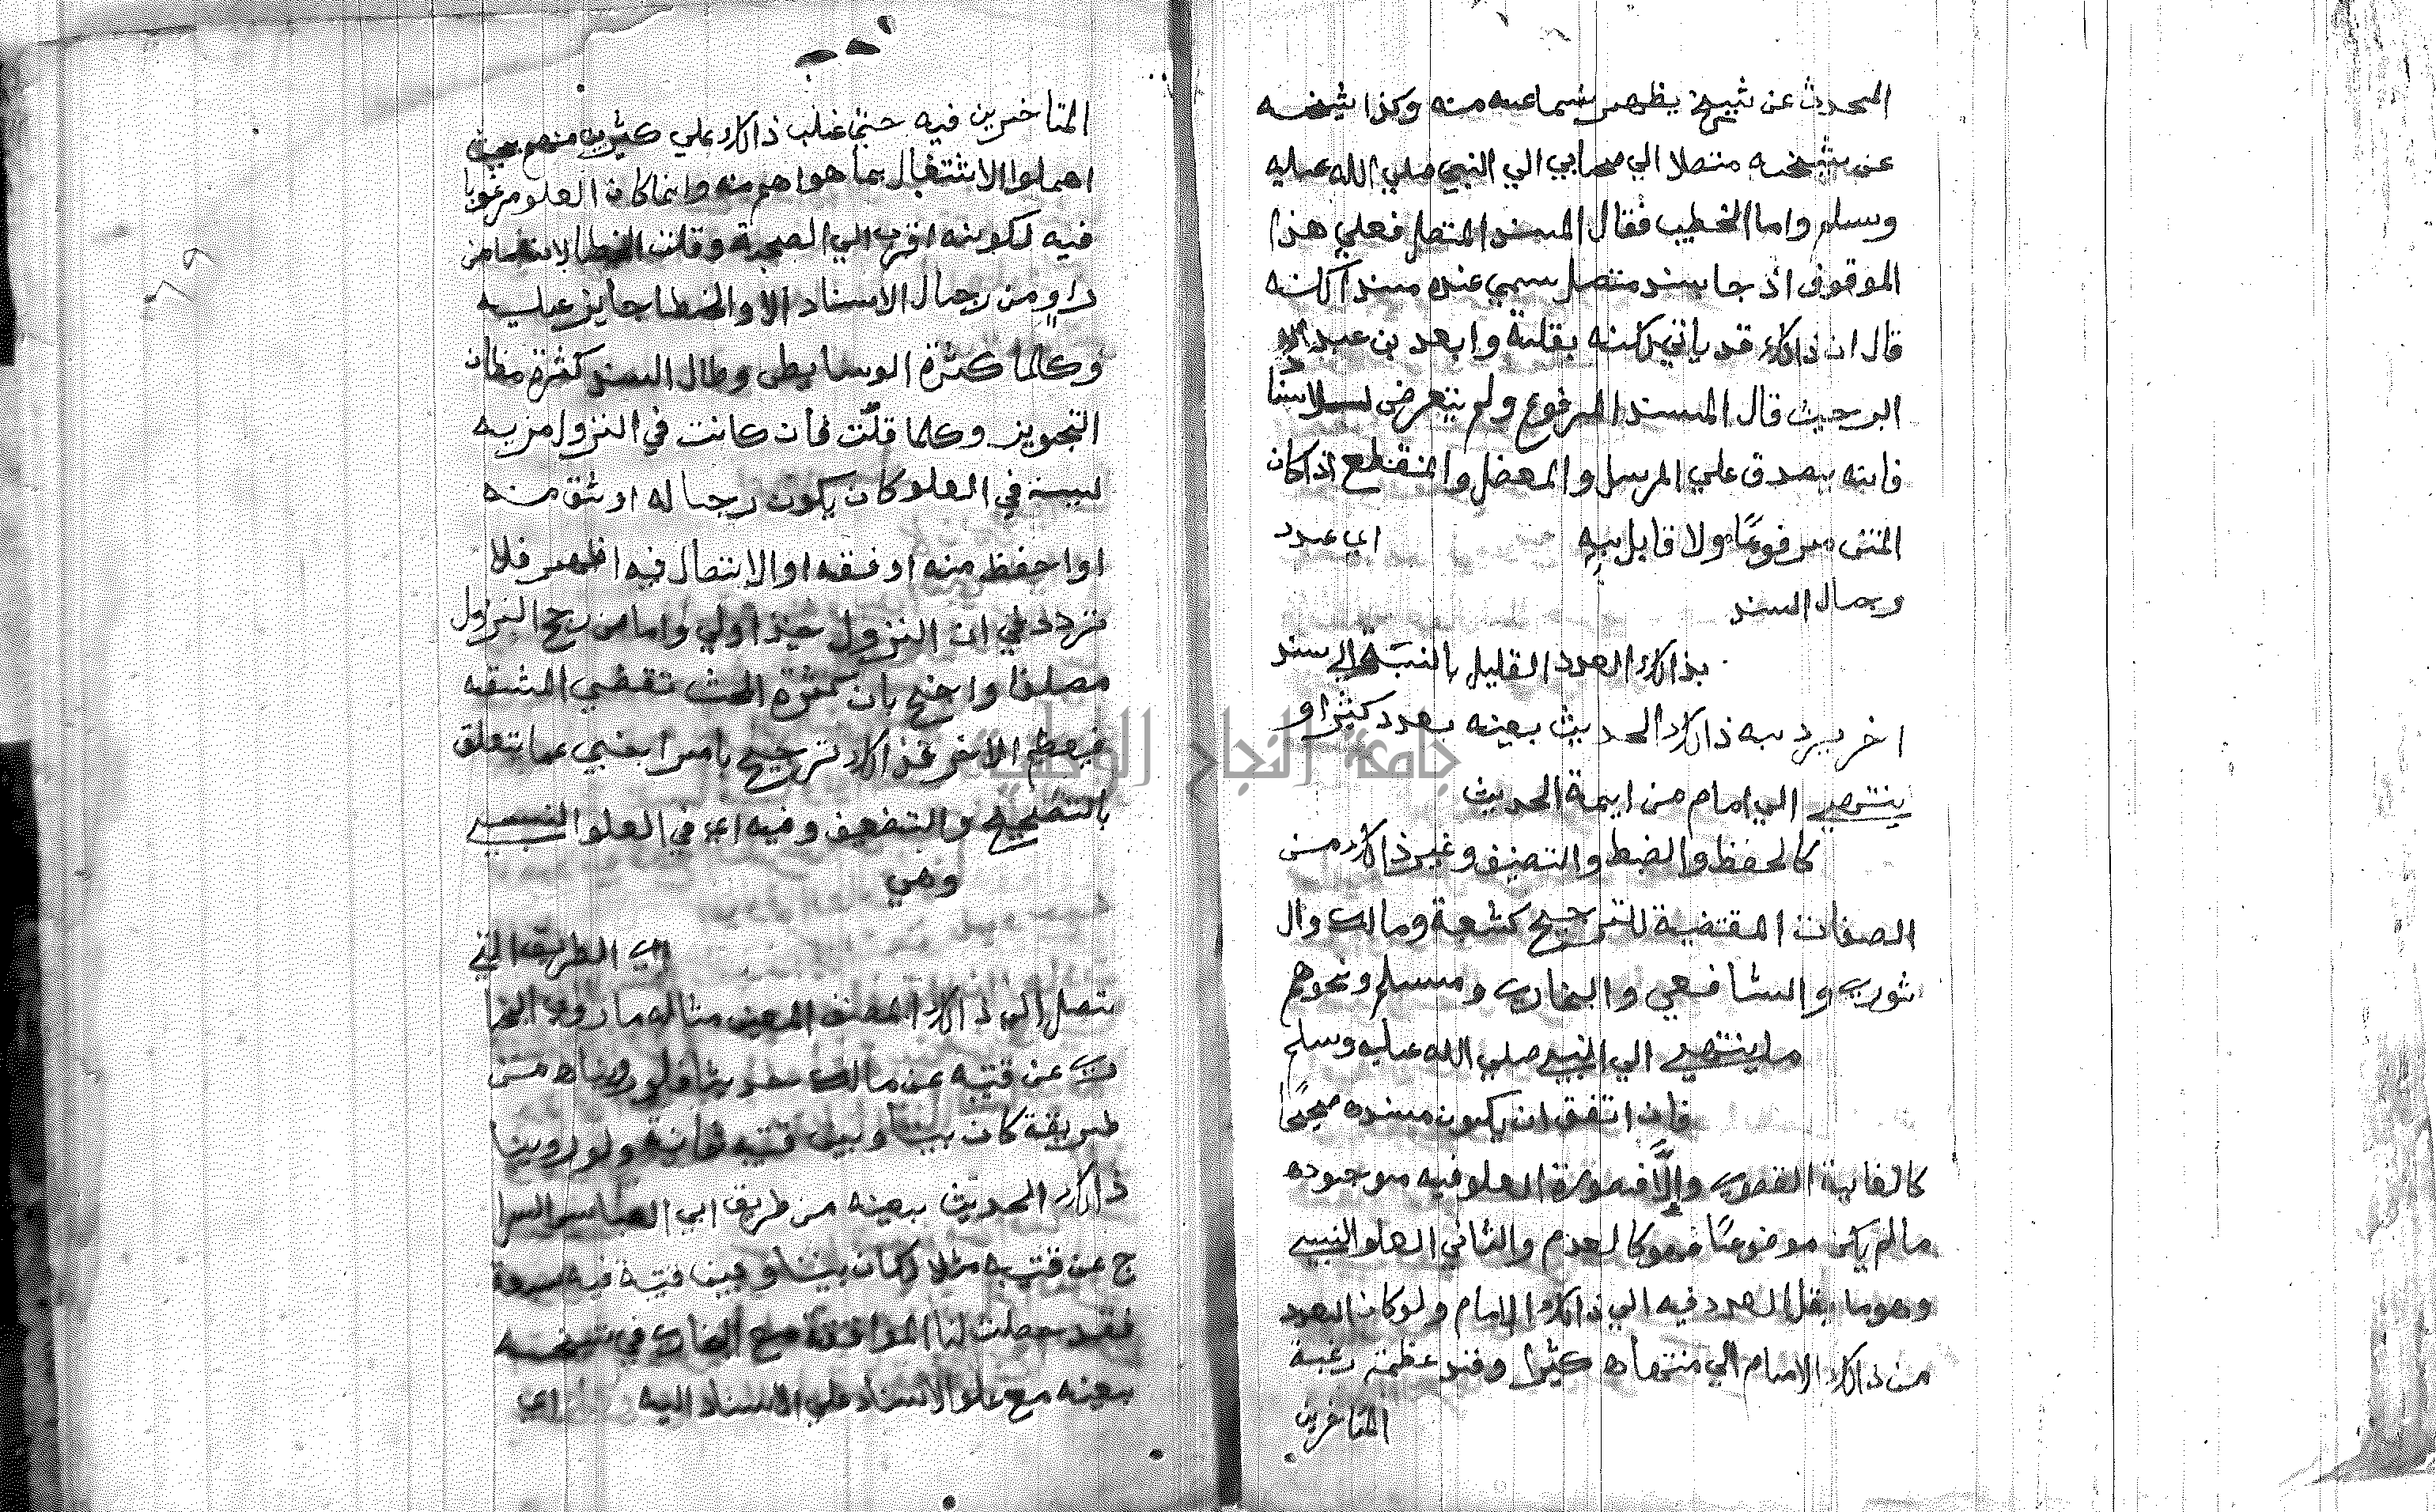 المحدث عن شيخ يظهر سماعه منه وكذا شيخه
عن شيخه متصلا الي صحابي الي النبي صلي الله عليه
وسلم واما الخطيب فقال المسند المتصل فعلي هذا
الموقوف اذ جا بسند متصل سمي عنده مسندا لكنه
قال ان ذالك قد ياتي لكنه بقلة وابعد بن عبد
البر حيث قال المسند المرفوع ولم يتعرض
فانه يصدق علي المرسل والمعضل والمنقطع اذا كان
المتن مرفوعًا ولا قايل به اي عدد
رجال السند
بذالك العدد القليل بالنسبة الي سند
اخر يرد به ذالك الحديث بعينه بعدد كثيرا و
ينتهي الي امام من ايمة الحديث
كالحفظ والضبط والتصنيف وغير ذالك من
الصفات المقتضية للترجيح كشعبة ومالك وال
ثوري والشافعي والبخاري ومسلم ونحوهم
ما ينتهي الي النبي صلي الله عليه وسلم
فان اتفق ان يكون مسنده صحيحًا
كالغاية القصوي وإلّا فصورة العلو فيه موجوده
ما لم يكن موضوعًا فهو كالعدم والثاني العلو النسبي
وهو ما يقل العدد فيه الي ذالك الامام ولو كان العدد
من ذالك الامام الي منتهاه كثيرا وقد عظمة رغبة
المتاخرين
المتاخرين فيه حتي غلب ذالك علي كثير منهم بحيث
اهملوا الاشتغال بما هو اهم منه وانما كان العلو مرغوبا
فيه لكونه اقرب الي الصحة وقلت الخطا لانه ما من
راوٍ من رجال الاسناد الا والخطا جايز عليه
وكلما كثرة الوسايط وطال السند كثرة مظان
التجويز وكلما قلّت قلت فان كانت في النزول مزيه
ليسة في العلو كان يكون رجاله اوثق منه
او احفظ منه او فقه او الاتصال فيه اظهر فلا
تردد في ان النزول حينذ اولي واما من رجح النزول
مصلقا واحتج بان كثرة البحث تقضي المشقه
فيعظم الاجر فذالك ترجيح بامر اجنبي عما يتعلق
بالتصحيح والتضعيف وفيه اي في العلو النسبي
وهي
اي الطريق التي
تتصل الي ذالك المصنف المعين مثاله ما روي البخا
ري عن قتيبه عن مالك حديثا فلو رويناه من
طريقة كان بيننا وبين قتيبه ثمانية ولو روينا
ذالك الحديث بعينه من طريق ابي العباس السرا
ج عن قتيبه مثلا لكان بيننا وبين قتيبة فيه سبعة
فقد حصلت لنا الموافقة مع البخاري في شيخه
بعينه مع علو الاسناد علي الاسناد اليه اي
جامعة النجاح الوطنية